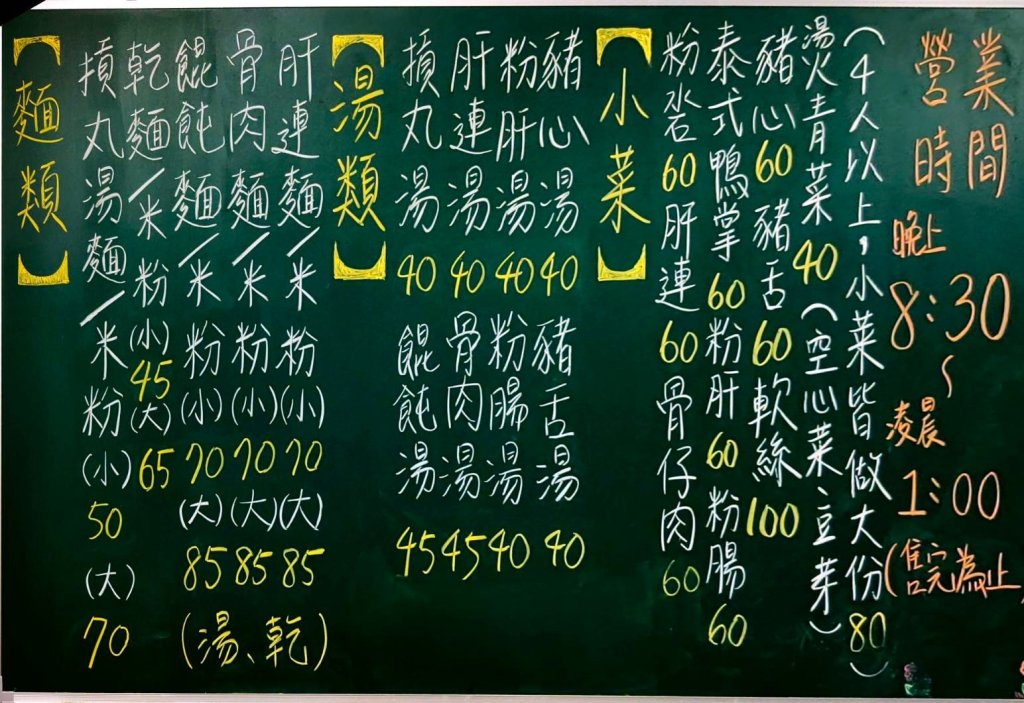 營業
時間
晚上
8:30
~
凌晨
1:00
(售完為止)
(4人以上,小菜皆做大份80)
燙青菜40(空心菜豆芽)
豬心60豬舌60軟絲100
泰式鴨掌60粉肝60粉腸60
粉 60肝連60骨仔肉60
【小菜】
豬心湯40 豬舌湯40
粉肝湯40 粉腸湯40
肝連湯40 骨肉湯45
摃丸湯40 餛飩湯45
【湯類】
肝連麵/米粉(小)70(大)85
骨肉麵/米粉(小)70(大)85
餛飩麵/米粉(小)70(大)85
(湯、乾)
乾麵/米粉(小)45(大)65
摃丸湯麵/米粉(小)50(大)70
【麵類】